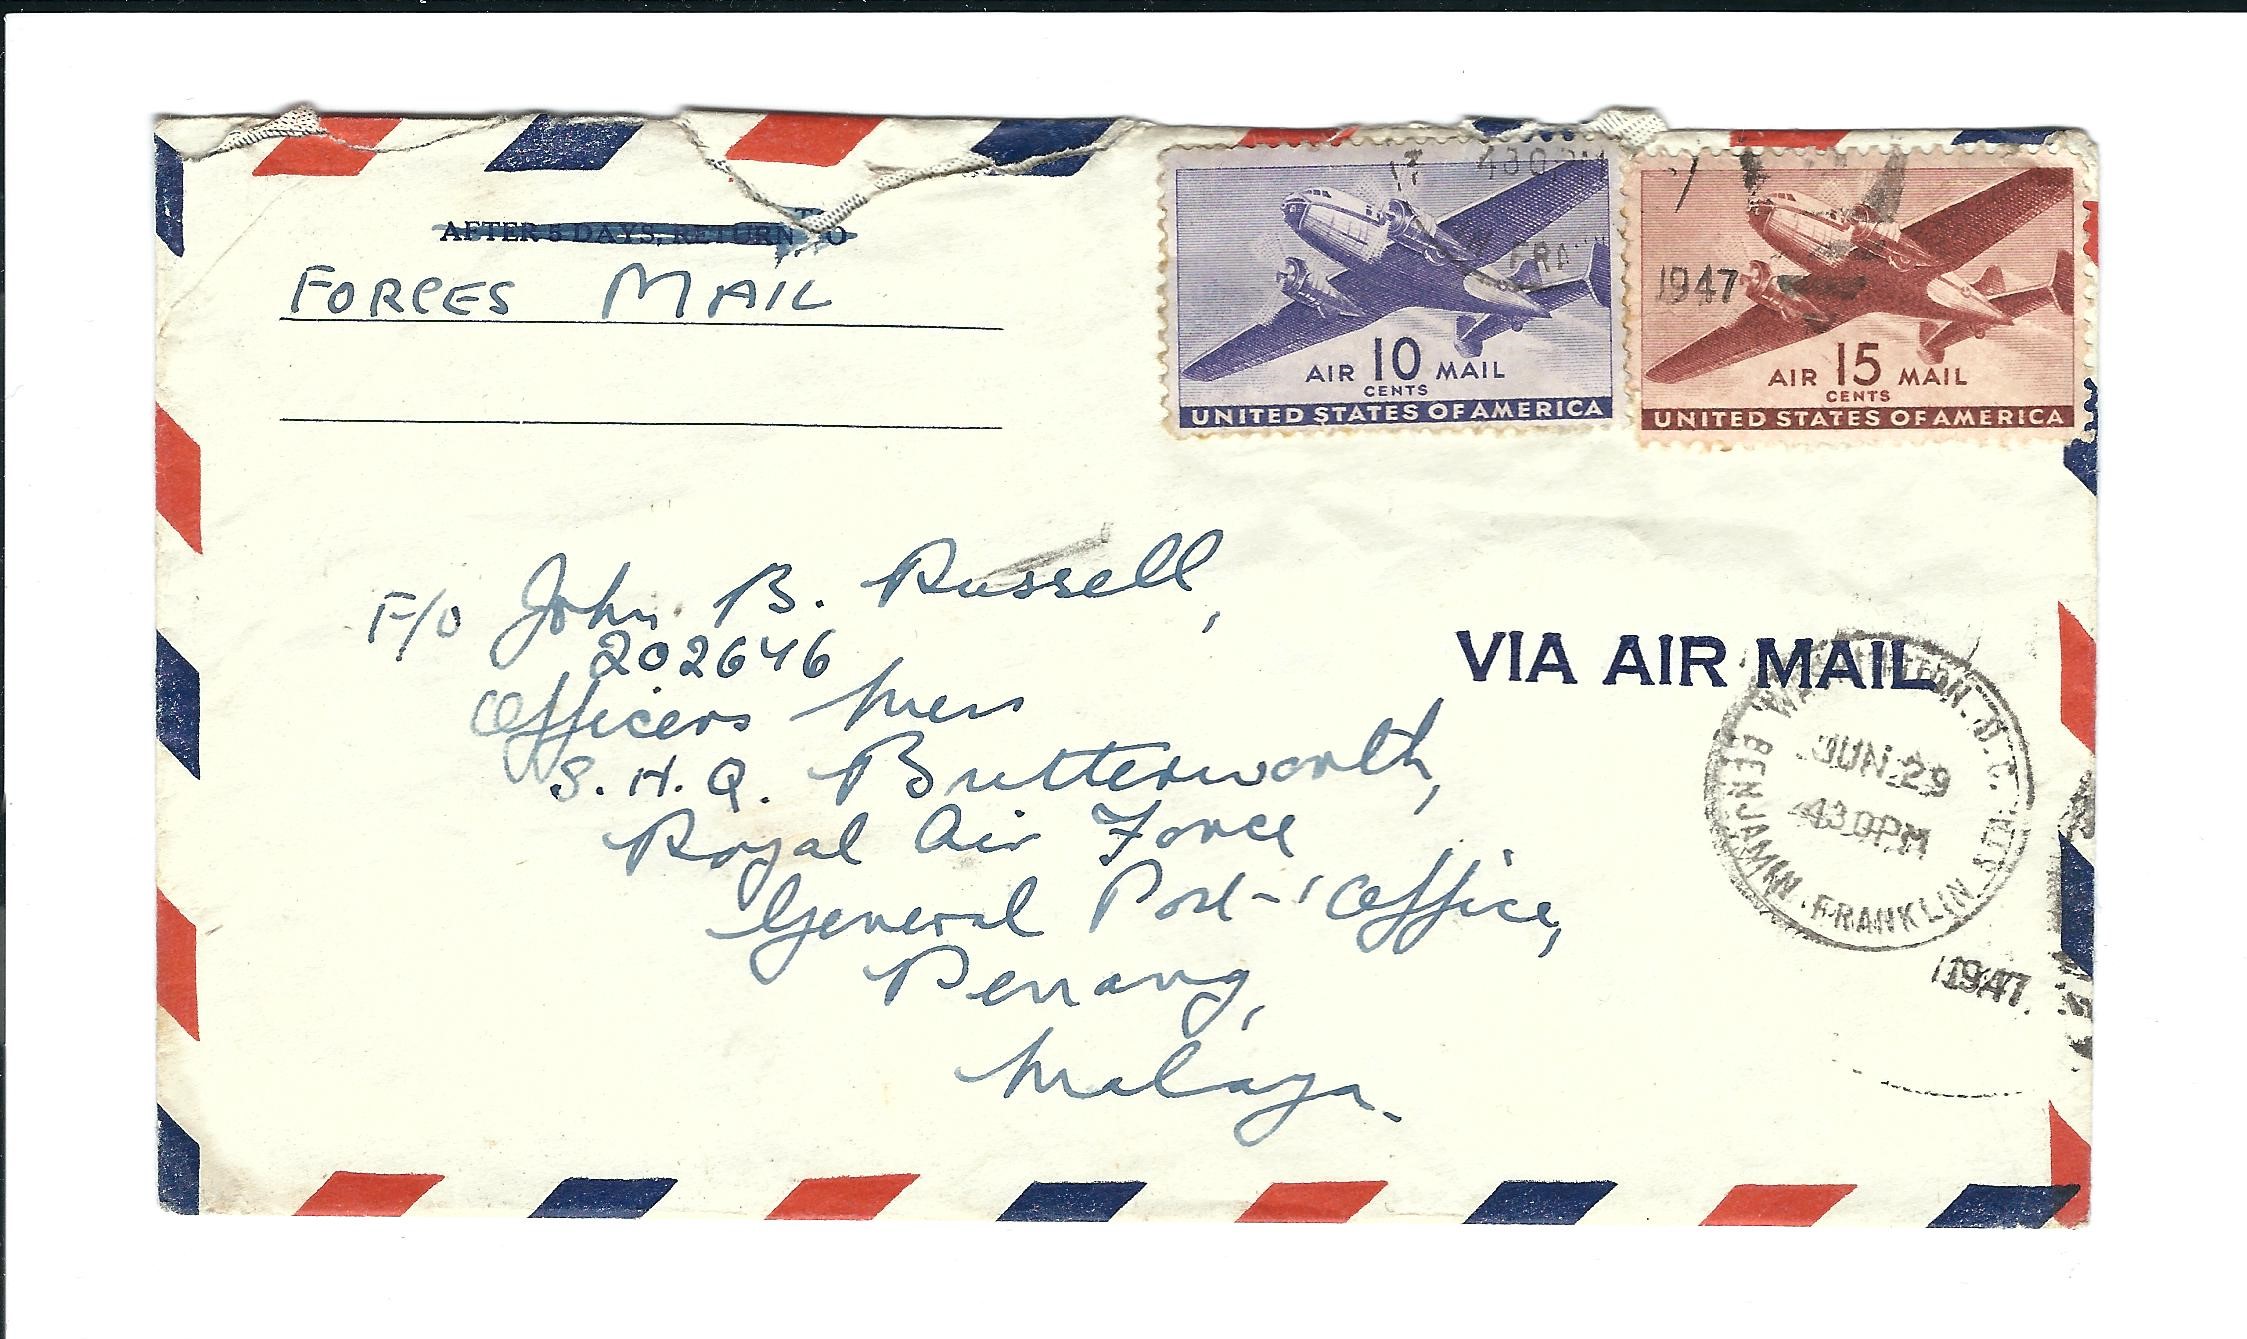 AFTER 5 DAYS, RETURN TO
FORCES MAIL
430 PM
1947
AIR 10 MAIL
CENTS
UNITED STATES OF AMERICA
AIR 15 MAIL
CENTS
UNITED STATES OF AMERICA
F/O John B. Russell,
202646
Officers Mess
S.H.Q. Butterworth,
Royal Air Force
General Post-Office,
Penang,
Malaya.
VIA AIR MAIL
WASHINGTON, D.C.
JUN 29
430PM
BENJAMIN FRANKLIN STA.
1947